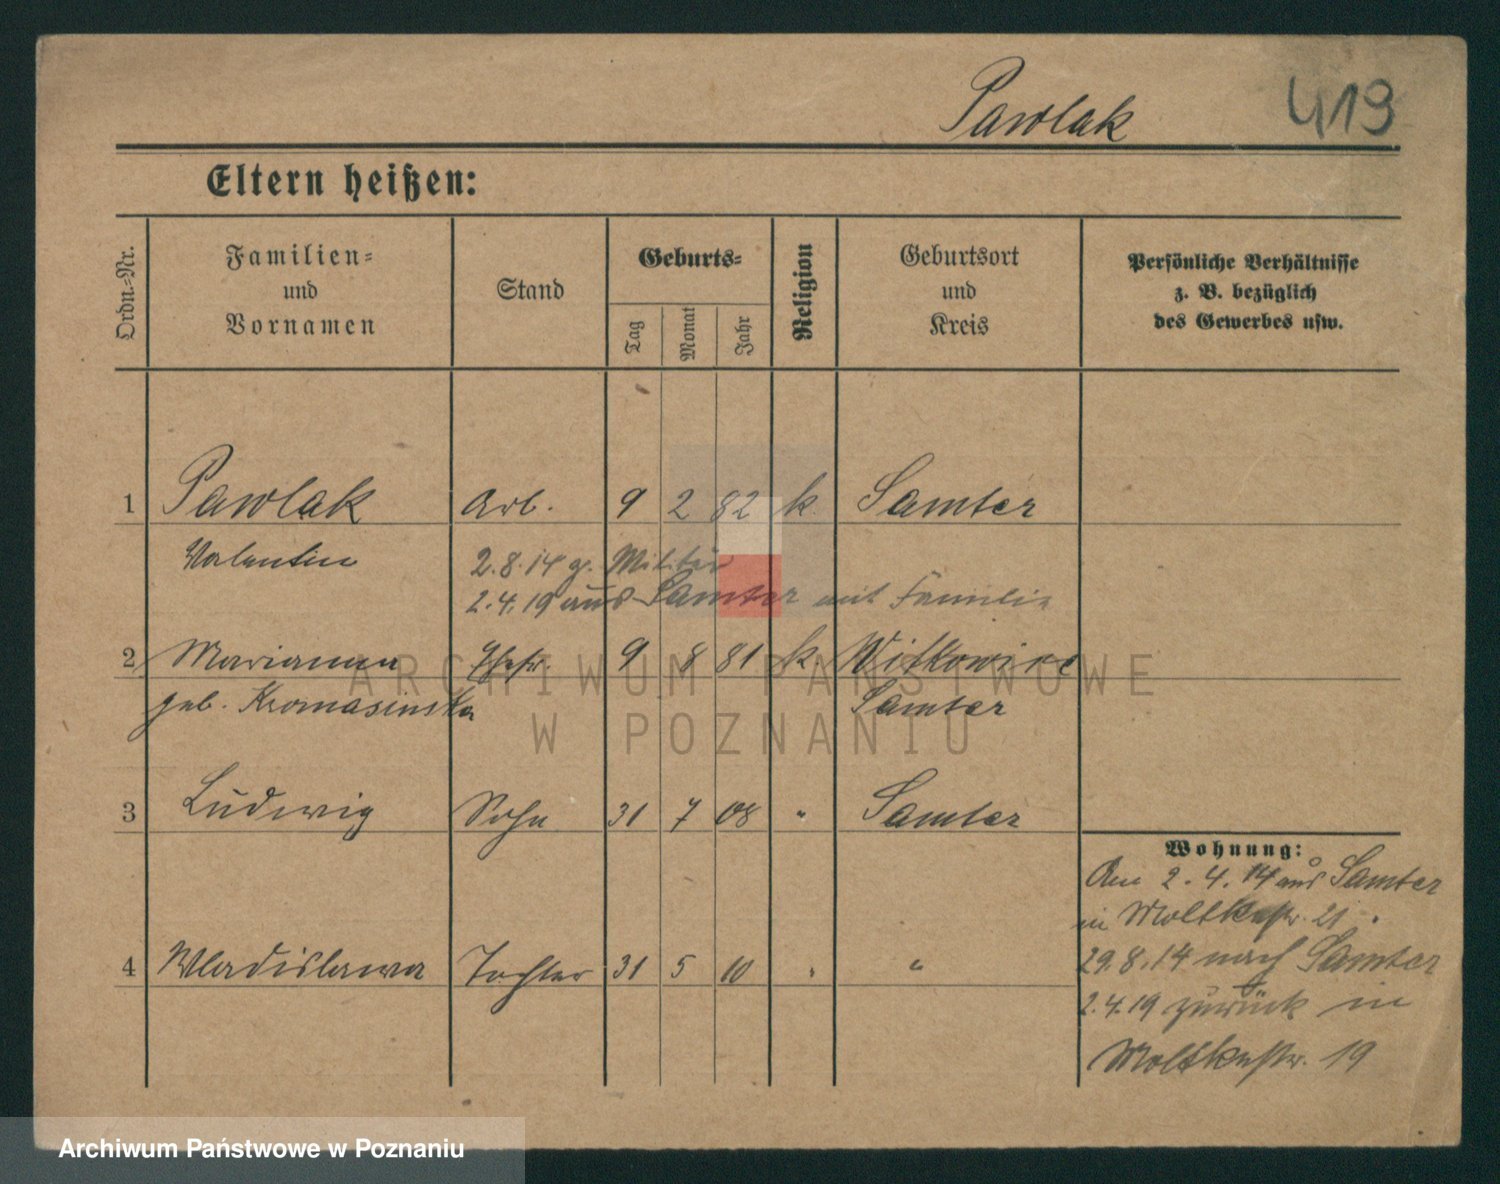 Pawlak 419
Eltern heißen:
Ordn.-Nr.
Familien-
und
Vornamen
Stand
Geburts-
Tag
Monat
Jahr
Religion
Geburtsort
und
Kreis
Persönliche Verhältnisse
z. B. bezüglich
des Gewerbes usw.
1 Pawlak Arb. 9 2 82 k. Samter
Valentin 2.8.14 z. Militär
2.4.19 aus Samter mit Familie
2 Marianna Ehefr. 9 8 81 k. Witkowice
geb. Kromasinska Samter
3 Ludwig Sohn 31 7 08 " Samter
4 Wladislawa Tochter 31 5 10 " "
Wohnung:
Am 2.4.14 aus Samter
in Moltkestr. 21.
29.8.14 nach Samter
2.4.19 zurück in
Moltkestr. 19
ARCHIWUM PAŃSTWOWE
W POZNANIU
Archiwum Państwowe w Poznaniu